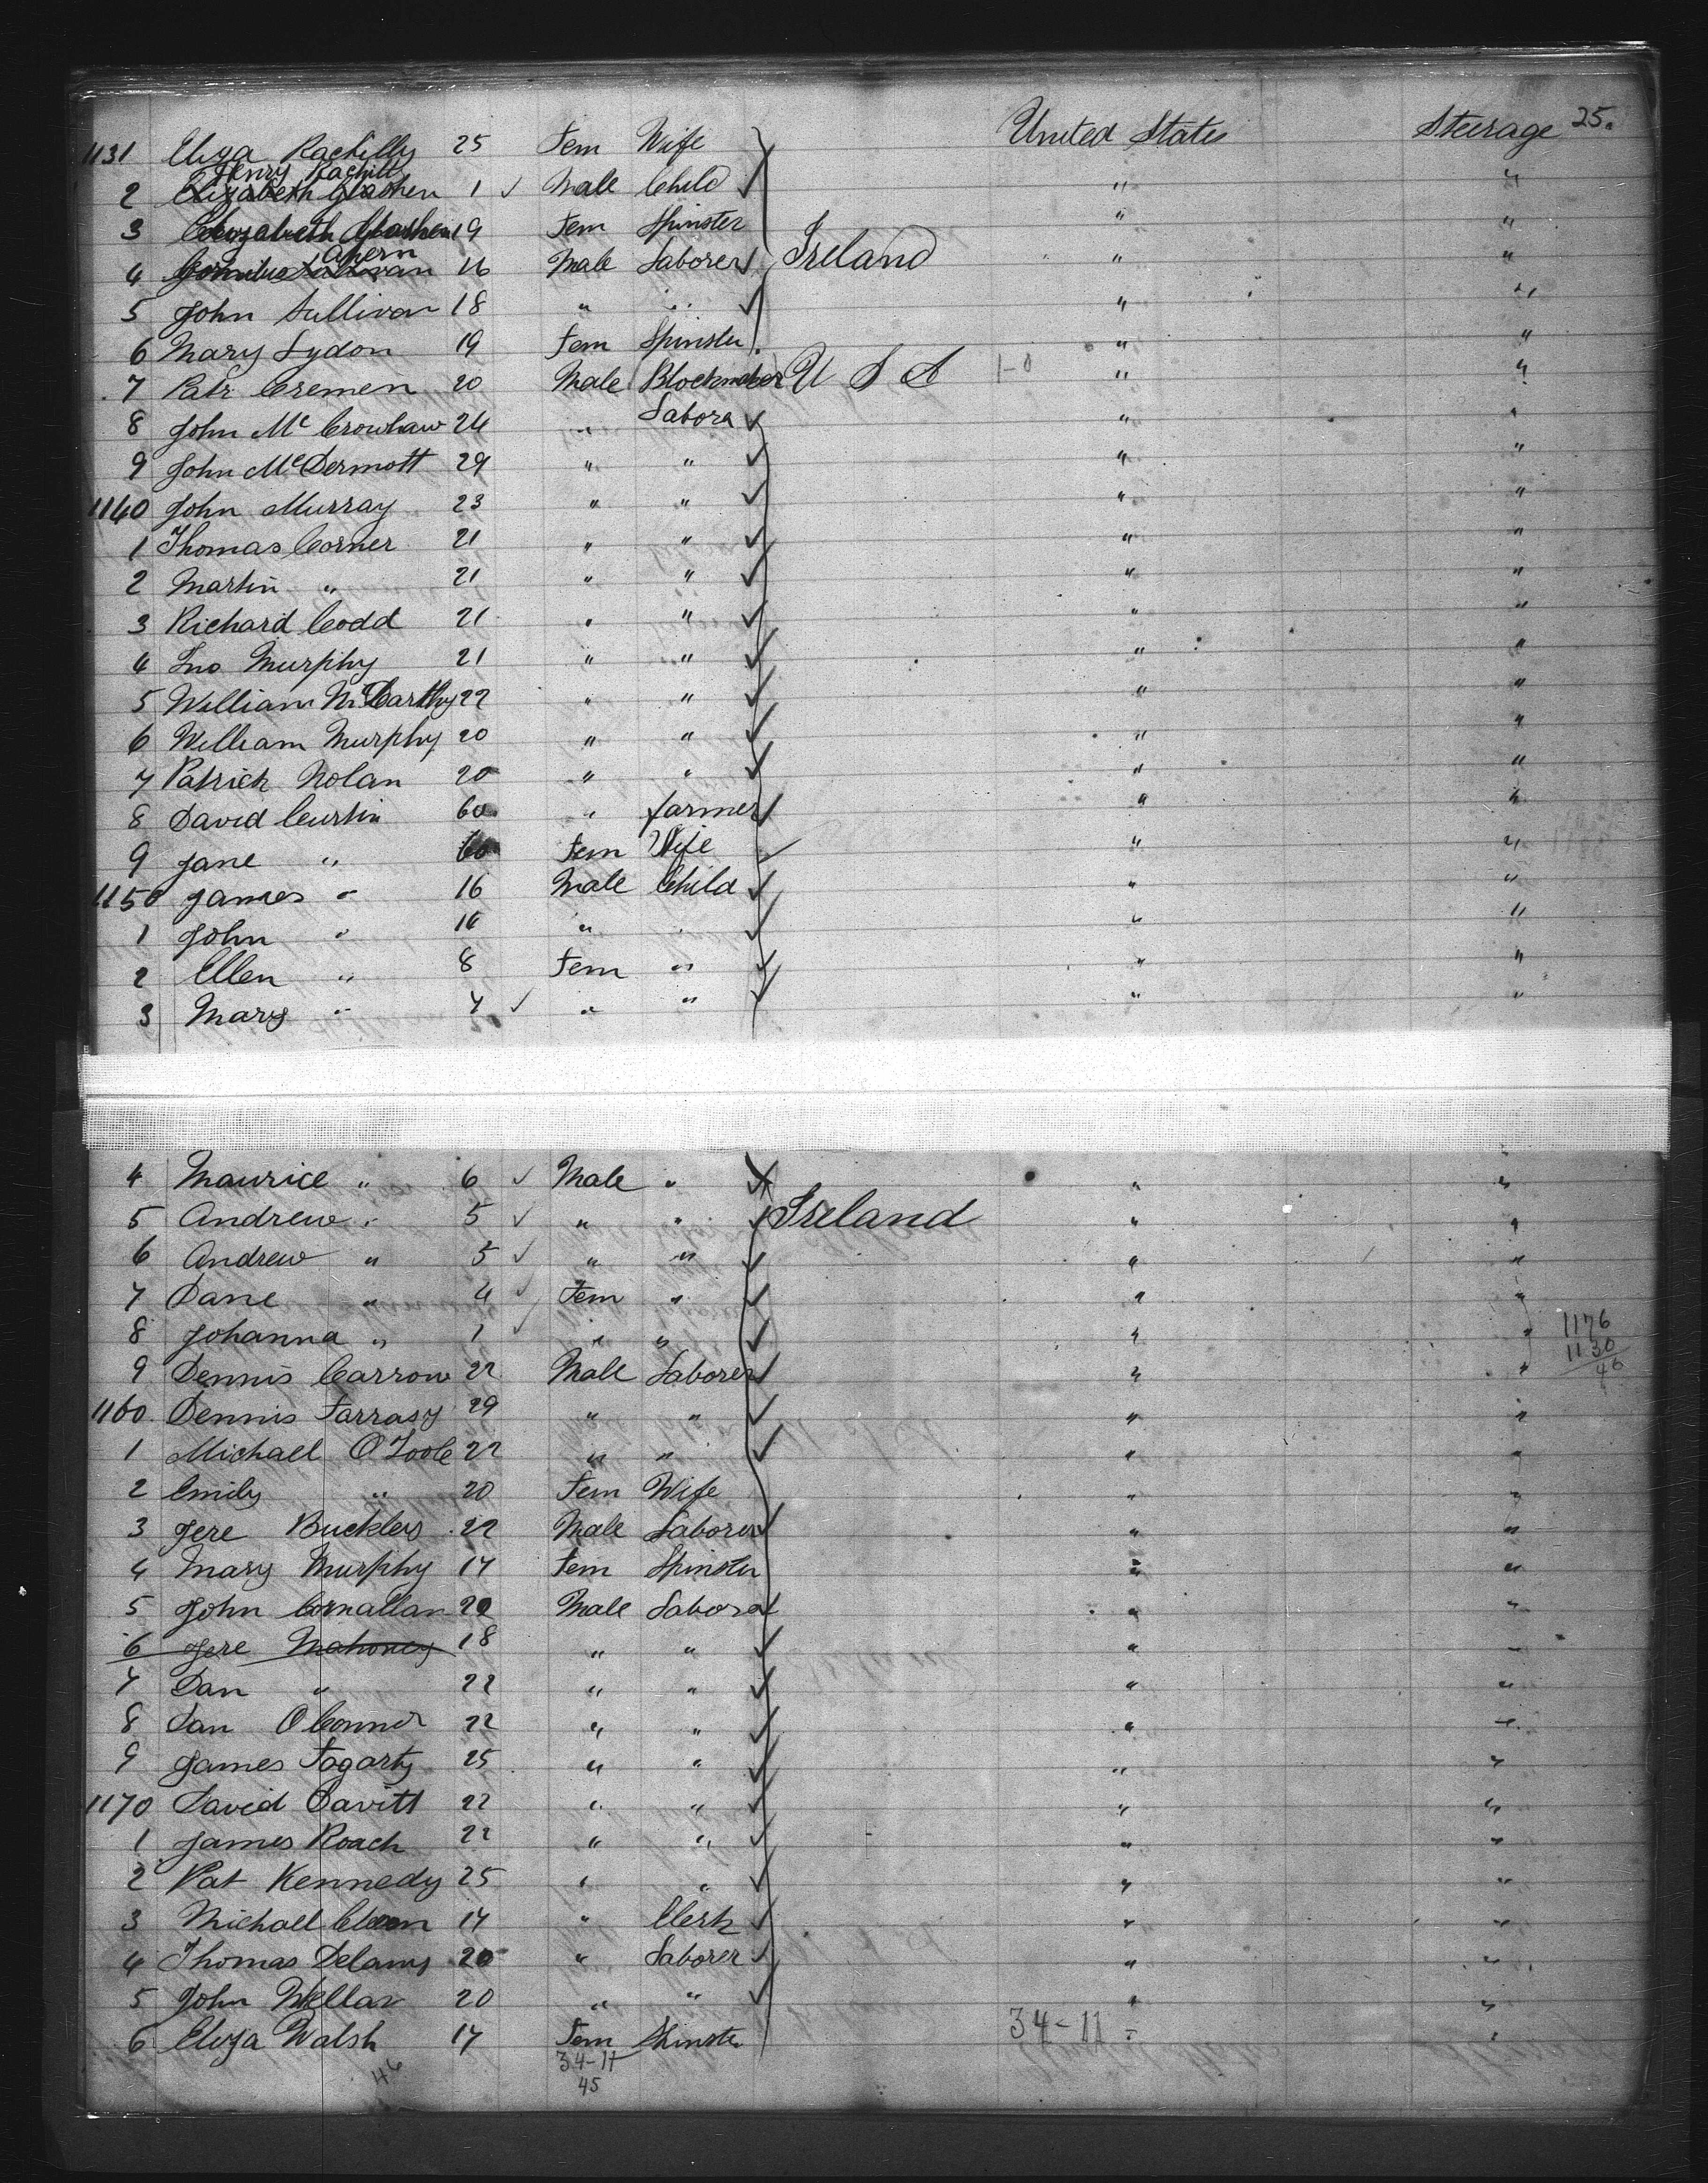 25.
1131 Eliza Rachilly 25 Fem Wife United States Steerage
Henry Rachill
2 Elizabeth Glashen 1 ✓ Male Child ✓ " "
3 Elizabeth Glashen 19 Fem Spinster " "
Ahern
4 Cornelius Sullivan 16 Male Laborer ✓ Ireland " "
5 John Sullivan 18 " " ✓ " "
6 Mary Lydon 19 Fem Spinster " "
7 Patr Cremen 20 Male Blockmaker U S A 1-0 " "
8 John Mc Crowhaw 24 " Labora ✓ " "
9 John McDermott 29 " " ✓ " "
1140 John Murray 23 " " ✓ " "
1 Thomas Corner 21 " " ✓ " "
2 Martin " 21 " " ✓ " "
3 Richard Codd 21 " " ✓ " "
4 Jno Murphy 21 " " ✓ " "
5 William McCarthy 22 " " ✓ " "
6 William Murphy 20 " " ✓ " "
7 Patrick Nolan 20 " " ✓ " "
8 David Curtin 60 " farmer ✓ " "
9 Jane " 60 Fem Wife " "
1150 James " 16 Male Child ✓ " "
1 John " " ✓ " "
2 Ellen " 8 Fem " ✓ " "
3 Mary " 7 ✓ " " ✓ " "
4 Maurice " 6 ✓ Male " ✓ " "
5 Andrew " 5 ✓ " " ✓ Ireland " "
6 Andrew " 5 ✓ " " ✓ " "
7 Dane " 4 ✓ Fem " ✓ " "
8 Johanna " 1 ✓ " " ✓ " " 1176
9 Dennis Carrow 22 Male Laborer ✓ " " 1130
46
1160 Dennis Farrasy 29 " " ✓ " "
1 Michael O'Toole 22 " " ✓ " "
2 Emily " 20 Fem Wife " "
3 Jere Buckley 22 Male Laborer ✓ " "
4 Mary Murphy 17 Fem Spinster " "
5 John Cornallan 20 Male Laborer ✓ " "
6 Jere Mahoney 18 " " ✓ " "
7 Dan " 22 " " ✓ " "
8 Dan O Connor 22 " " ✓ " "
9 James Fogarty 25 " " ✓ " "
1170 David Davitt 22 " " ✓ " "
1 James Roach 22 " " ✓ " "
2 Pat Kennedy 25 " " ✓ " "
3 Michael 17 " Clerk ✓ " "
4 Thomas Delany 20 " Laborer ✓ " "
5 John Wellar 20 " " ✓ " "
6 Eliza Walsh 17 Fem Spinster 34-11 " "
46 34-11
45